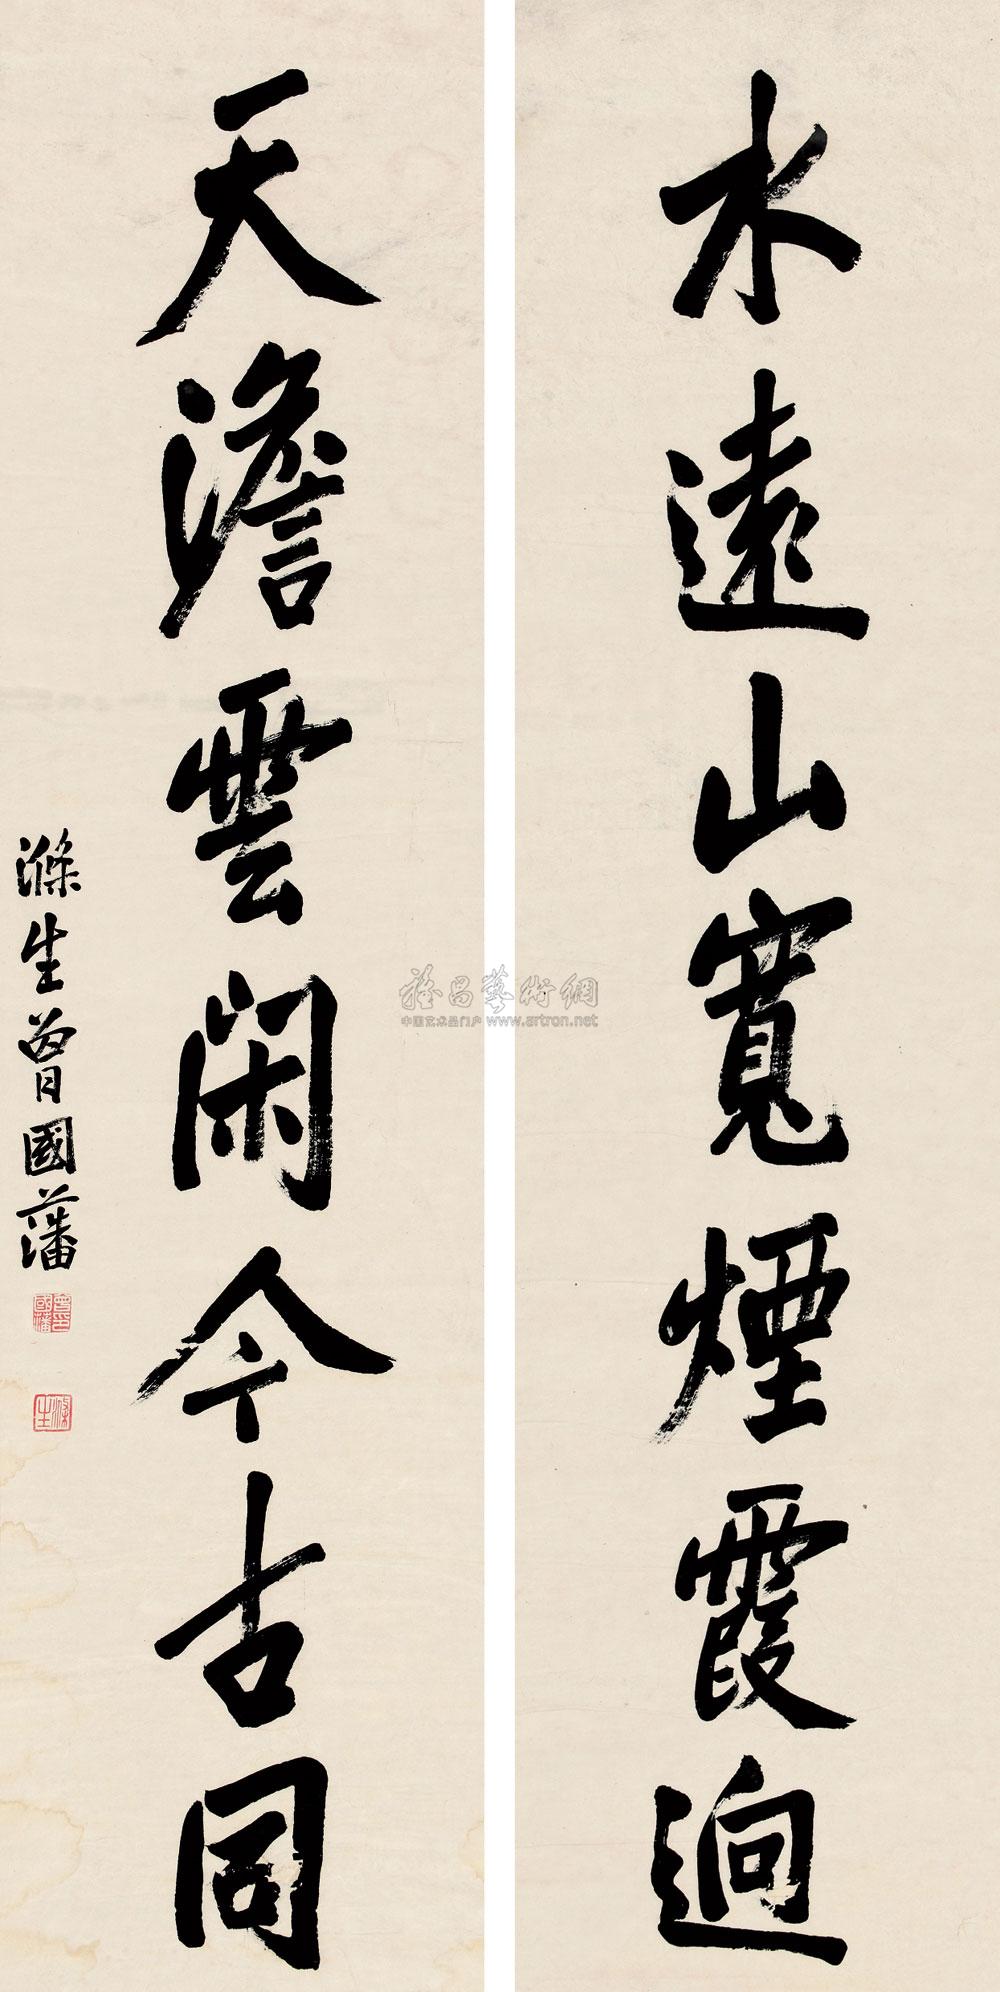 水遠山寬煙霞迥
天澹雲閑今古同
滌生曾國藩
曾國藩印
滌生
雅昌藝術網
中国艺术品门户 www.artron.net